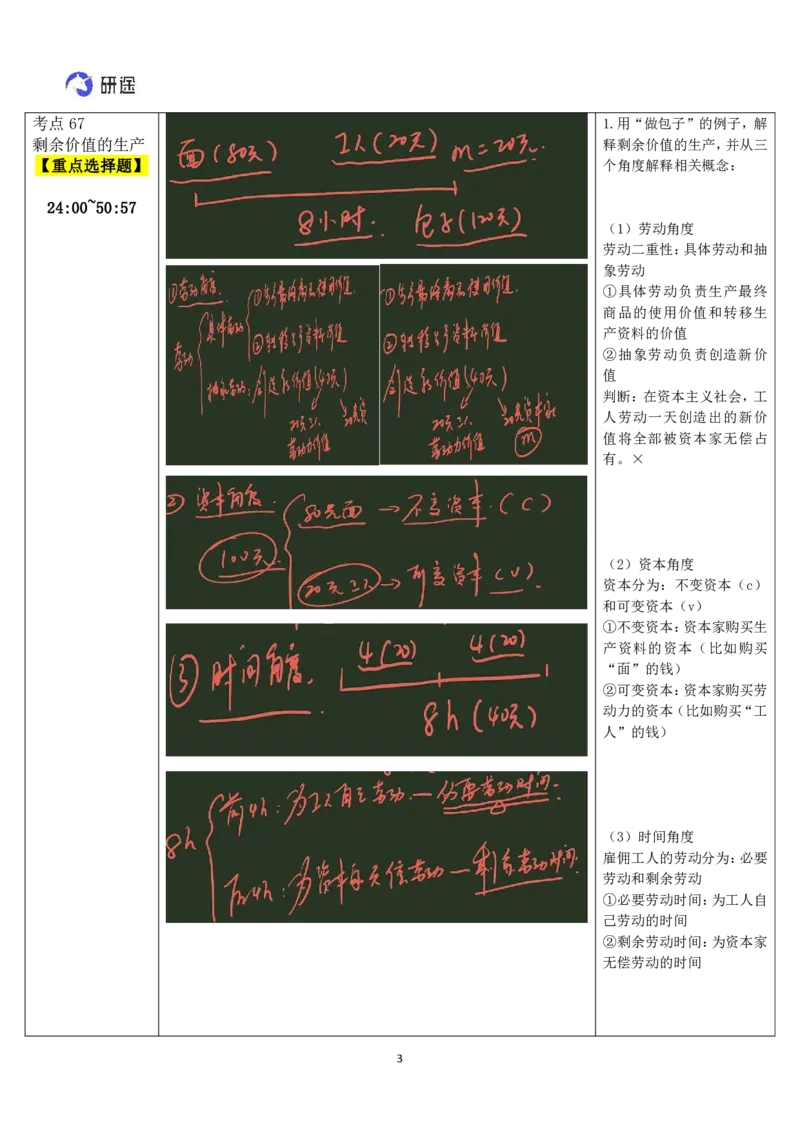 研途
考点 67
剩余价值的生产
【重点选择题】
24:00~50:57
面(80元)
工人(20元)
m=20元.
8小时.
包子(120元)
①劳动角度.
劳动
具体劳动
①生产最终商品使用价值.
②转移生产资料价值
抽象劳动:创造新价值(40元)
20元工人
劳动力价值
①生产最终商品使用价值.
②转移生产资料价值
创造新价值(40元)
20元工人
劳动力价值
m
②资本角度.
100元
80元面→不变资本.(C)
20元工人→可变资本(v).
③时间角度.
4(20)
4(20)
8h(40元)
8h
前4h:为工人自己劳动.—必要劳动时间.
后4h:为资本家无偿劳动—剩余劳动时间.
1.用“做包子”的例子,解
释剩余价值的生产,并从三
个角度解释相关概念:
(1)劳动角度
劳动二重性:具体劳动和抽
象劳动
①具体劳动负责生产最终
商品的使用价值和转移生
产资料的价值
②抽象劳动负责创造新价
值
判断:在资本主义社会,工
人劳动一天创造出的新价
值将全部被资本家无偿占
有。×
(2)资本角度
资本分为:不变资本(c)
和可变资本(v)
①不变资本:资本家购买生
产资料的资本(比如购买
“面”的钱)
②可变资本:资本家购买劳
动力的资本(比如购买“工
人”的钱)
(3)时间角度
雇佣工人的劳动分为:必要
劳动和剩余劳动
①必要劳动时间:为工人自
己劳动的时间
②剩余劳动时间:为资本家
无偿劳动的时间
3